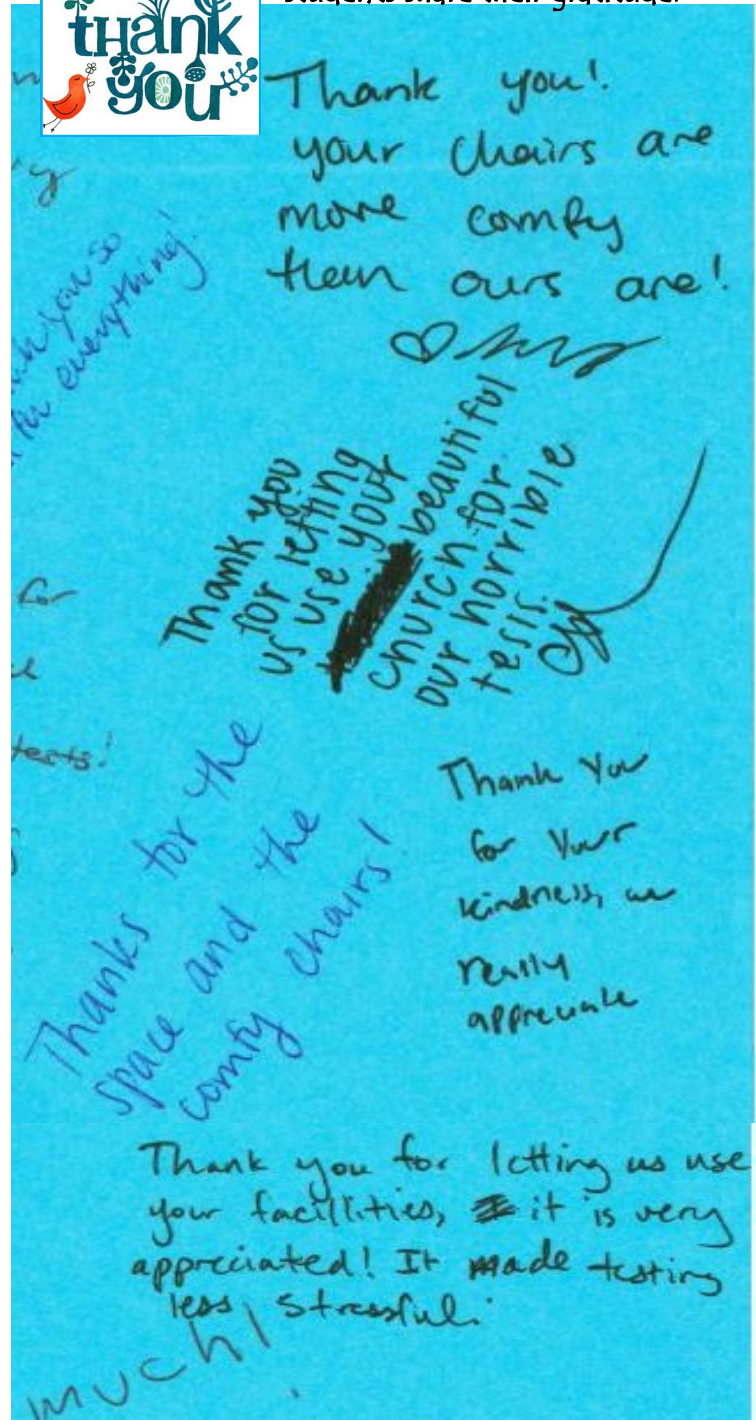 students share their gratitude!
thank
you
Thank you!
your chairs are
more comfy
than ours are!
you so
for everything!
Thank you
for letting
us use your
beautiful
church for
our horrible
tests.
for
tests!
Thanks for the
space and the
comfy chairs!
Thank You
for Your
kindness, we
really
appreciate
Thank you for letting us use
your facillities, it is very
appreciated! It made testing
less stressful.
much!